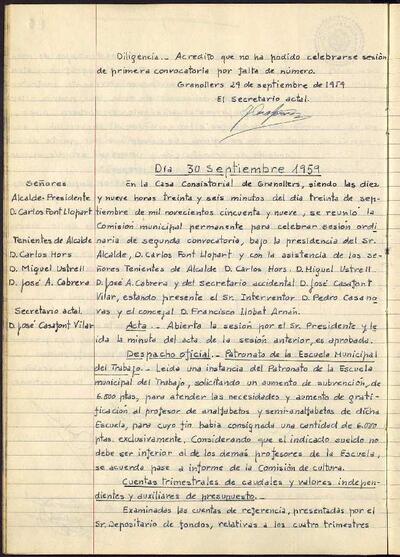 Diligencia.- Acredito que no ha podido celebrarse sesión
de primera convocatoria por falta de número.
Granollers 29 de septiembre de 1959
El Secretario actal.
Día 30 Septiembre 1959
Señores
Alcalde-Presidente
D. Carlos Font Llopart
Tenientes de Alcalde
D. Carlos Hors
D. Miguel Ustrell
D. José A. Cabrera
Secretario actal.
D. José Casafont Vilar
En la Casa Consistorial de Granollers, siendo las diez
y nueve horas treinta y seis minutos del día treinta de sep-
tiembre de mil novecientos cincuenta y nueve, se reunió la
Comisión municipal permanente para celebrar sesión ordi-
naria de segunda convocatoria, bajo la presidencia del Sr.
Alcalde, D. Carlos Font Llopart y con la asistencia de los se-
ñores Tenientes de Alcalde D. Carlos Hors, D. Miguel Ustrell
D. José A. Cabrera y del Secretario accidental D. José Casafont
Vilar, estando presente el Sr. Interventor D. Pedro Casano-
vas y el concejal D. Francisco Llobet Arnán.
Acta.- Abierta la sesión por el Sr. Presidente y leí
da la minuta del acta de la sesión anterior, es aprobada.
Despacho oficial.- Patronato de la Escuela Municipal
del Trabajo.- Leída una instancia del Patronato de la Escuela
municipal del Trabajo, solicitando un aumento de subvención, de
6.500 ptas, para atender las necesidades y aumento de grati-
ficación al profesor de analfabetos y semi-analfabetos de dicha
Escuela, para cuyo fin había consignada una cantidad de 6.000
ptas. exclusivamente, Considerando que el indicado sueldo no
debe ser inferior al de los demás profesores de la Escuela,
se acuerda pase a informe de la Comisión de cultura.
Cuentas trimestrales de caudales y valores indepen-
dientes y auxiliares de presupuesto.-
Examinadas las cuentas de referencia, presentadas por el
Sr. Depositario de fondos, relativas a los cuatro trimestres